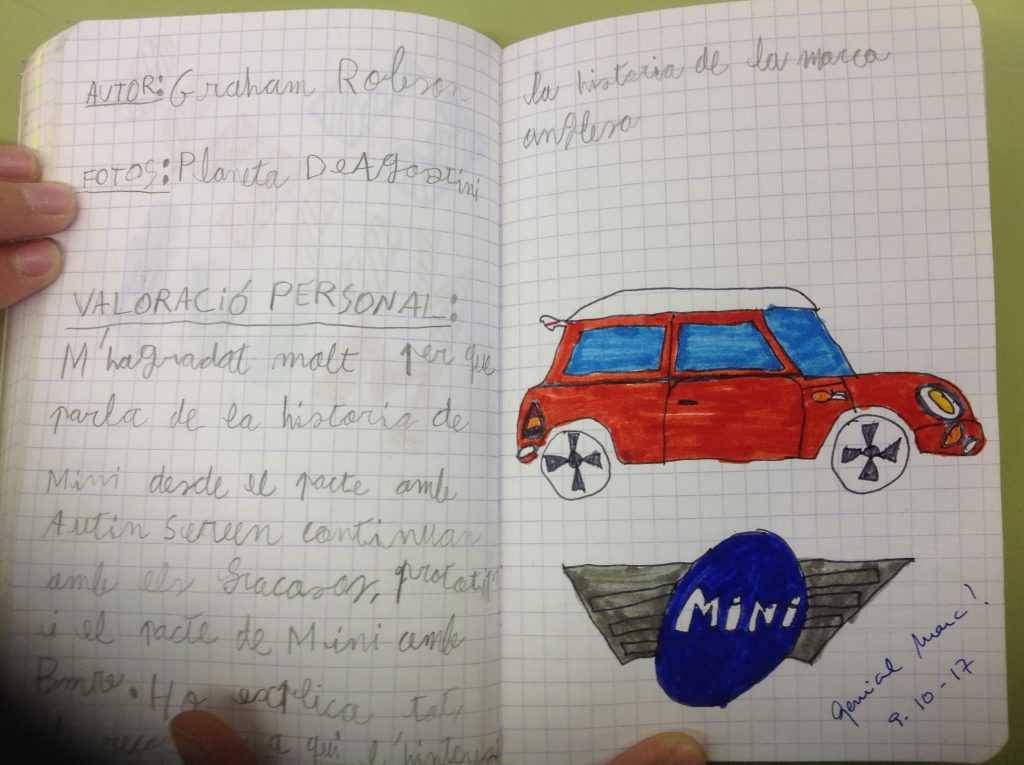 AUTOR: Graham Robson
FOTOS: Planeta DeAgostini
VALORACIÓ PERSONAL:
M'hagradat molt per que
parla de la historia de
Mini desde el pacte amb
Autin continuan
amb els fracasos, prototip
i el pacte de Mini amb
Bmw. Ho explica tot
a qui l'hinteresi
la historia de la marca
anglesa
MiNi
genial Marc!
9-10-17